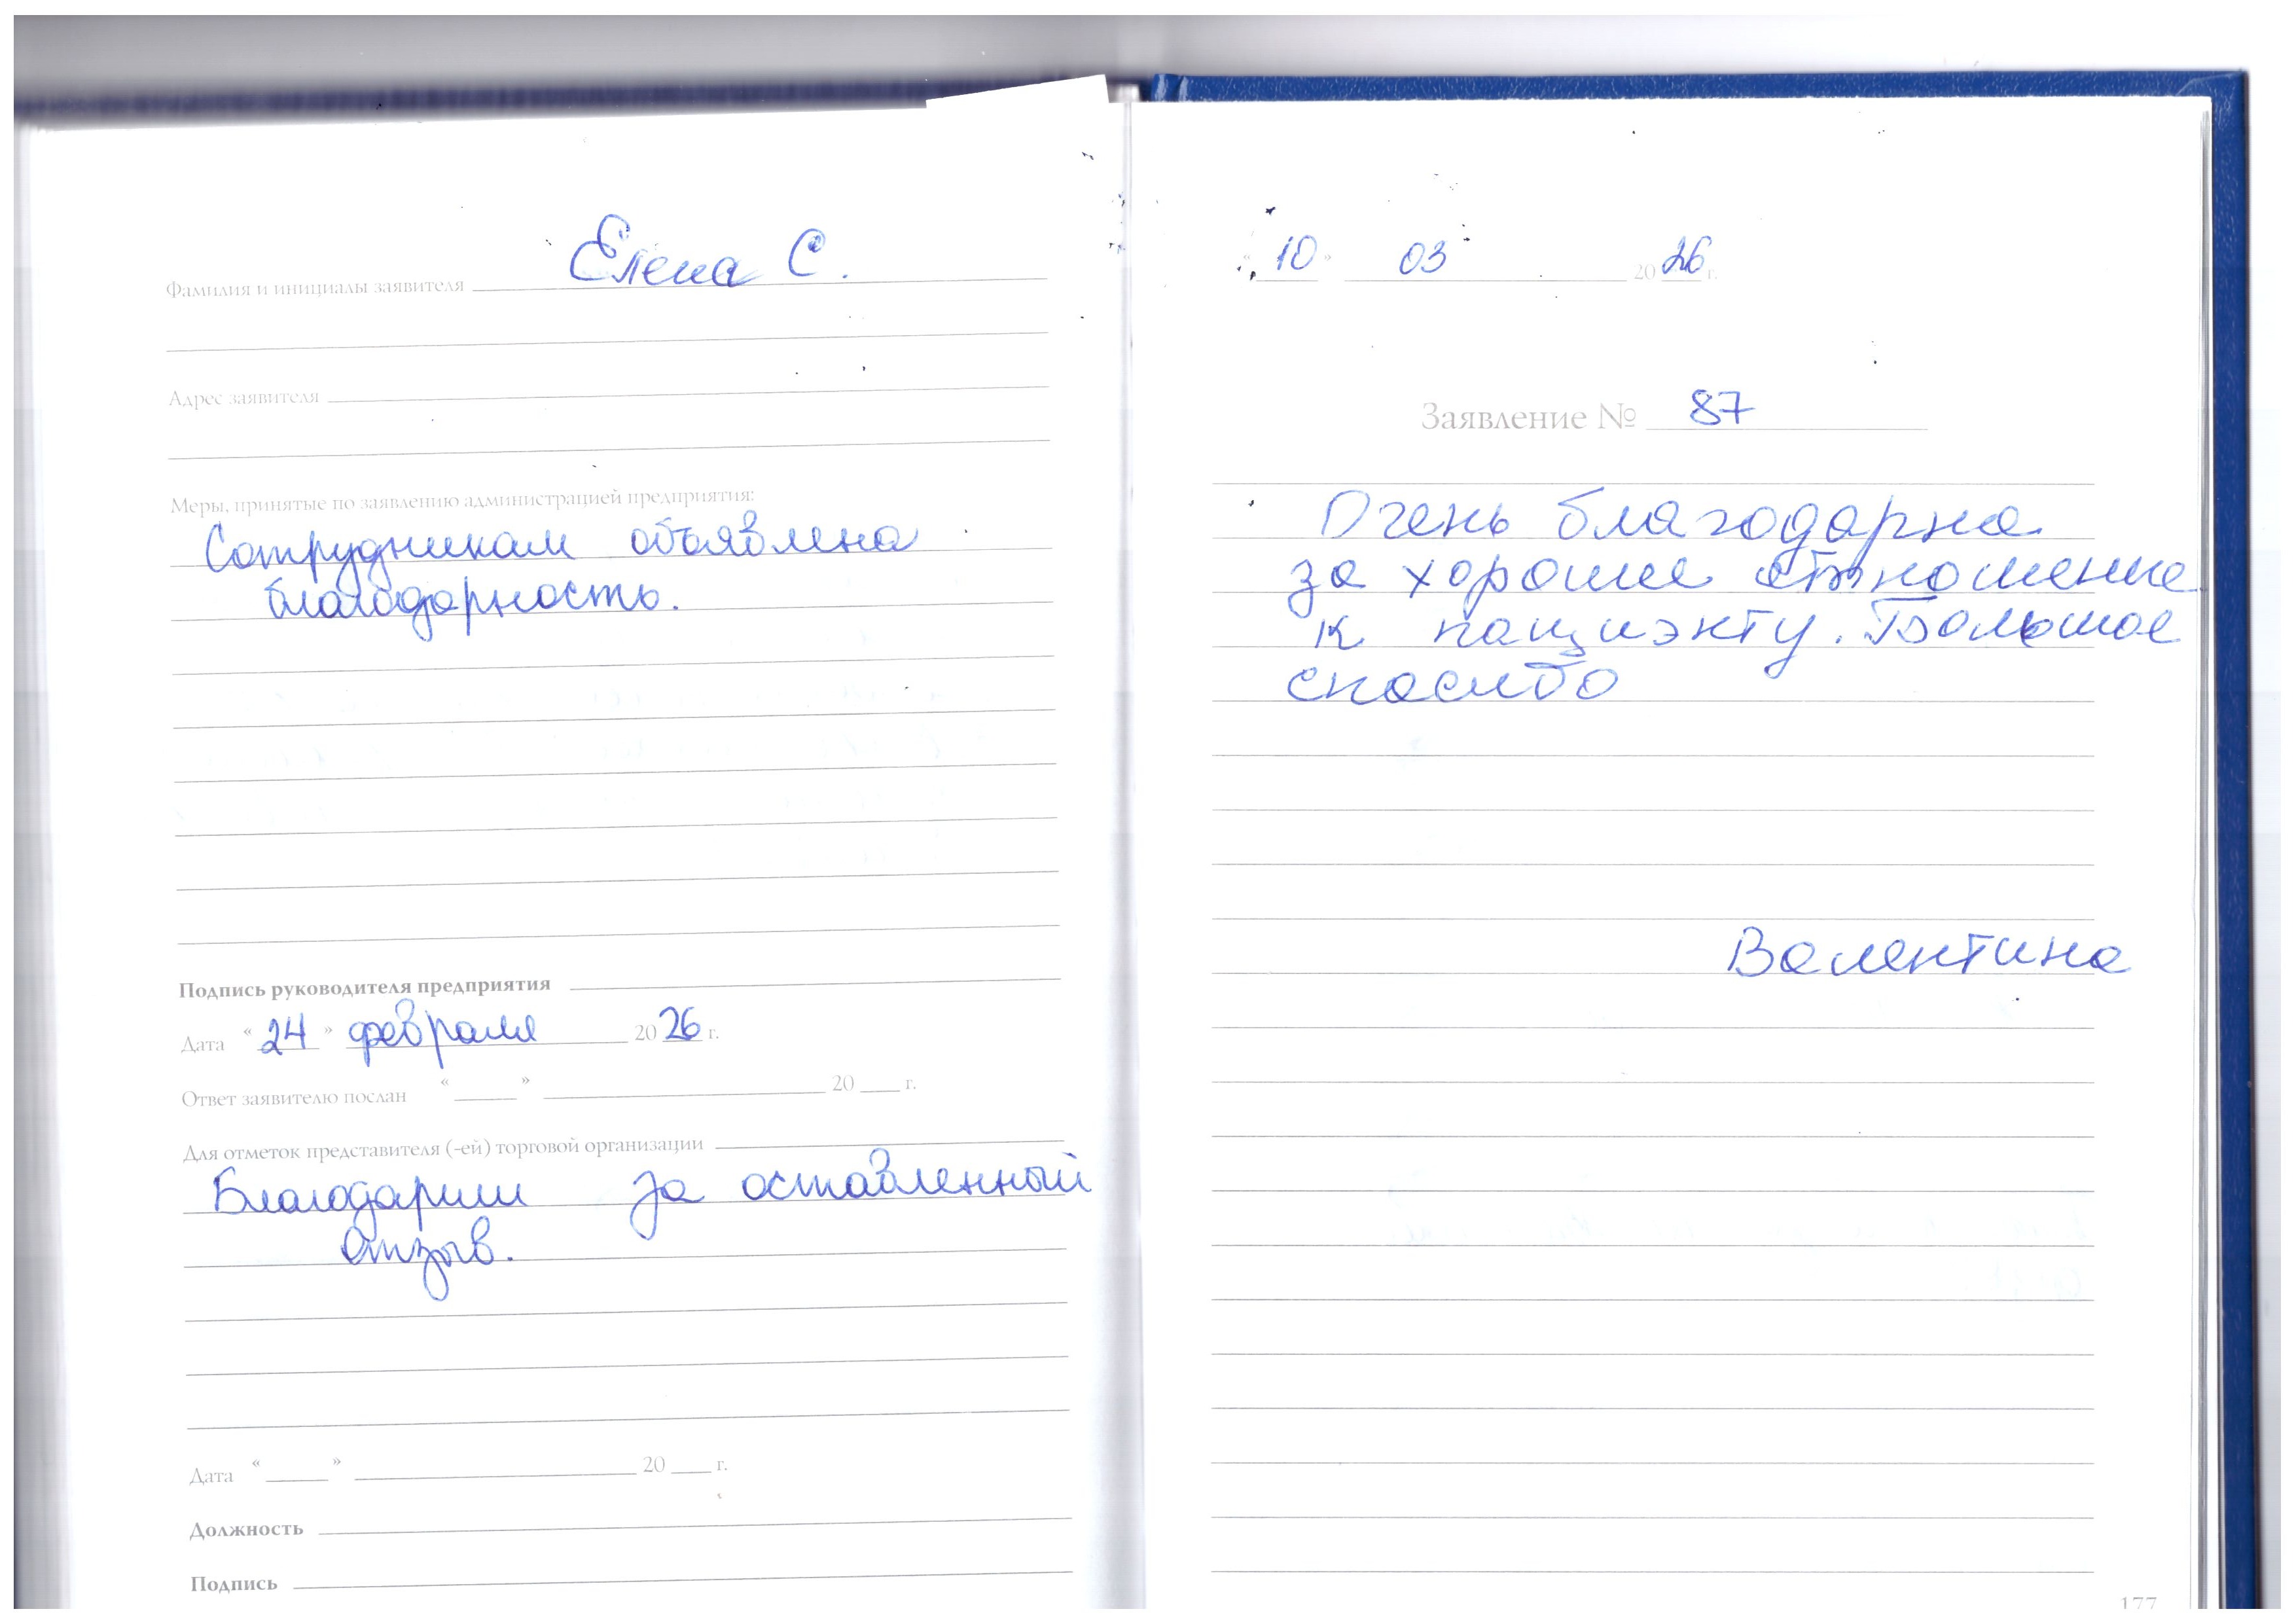 Фамилия и инициалы заявителя Елена С.
Адрес заявителя
Меры, принятые по заявлению администрацией предприятия:
Сотрудникам объявлена
благодарность.
Подпись руководителя предприятия
Дата “ 24 ” февраля 20 26 г.
Ответ заявителю послан “ ” 20 г.
Для отметок представителя (-ей) торговой организации
Благодарим за оставленный
отзыв.
Дата “ ” 20 г.
Должность
Подпись
“ 10 ” 03 20 26 г.
Заявление № 87
Очень благодарна
за хорошее отношение
к пациэнту. Большое
спасибо
Валентина
177